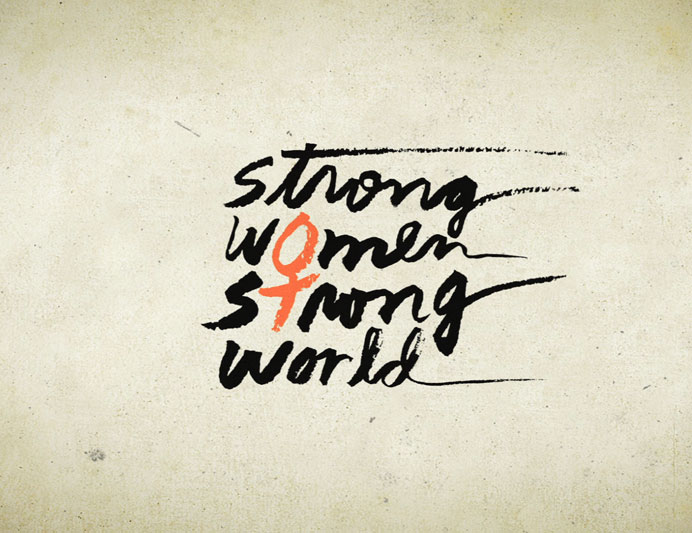 strong
women
strong
world